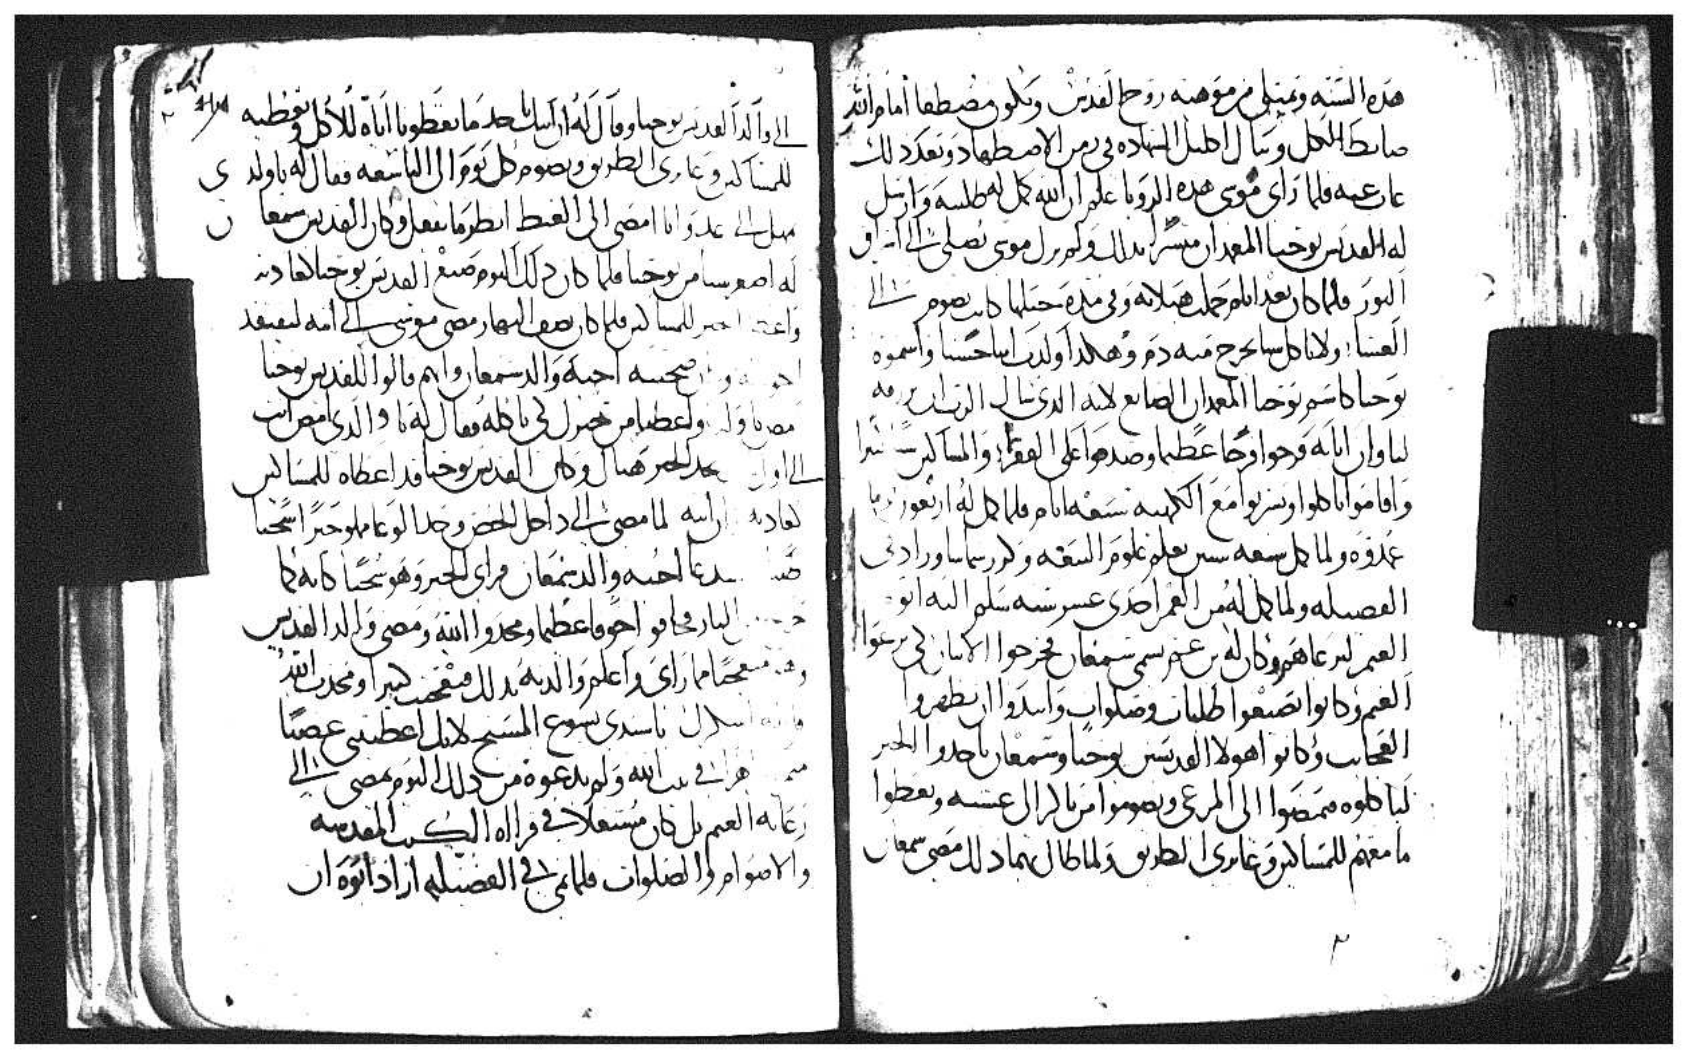 هذه السنه وتمتلى من موهبه روح القدس ويكون مصطفا امام الله
ضابط الكل وينال اكليل الشهاده فى زمن الاضطهاد وبعد ذلك
غاب عنه فلما راى موسى هذه الرويا علم ان الله كمل له طلبته وارسل
له القديس يوحنا المعمدان مبشرا بذلك ولم يزل موسى يصلى الى ان اشرق
النور فلما كان بعد ايام حملت هيلانه وفى مده حبلها كانت تصوم الى
العشا ولا تاكل شيا يخرج منه دم وهكذا اولدت ابنا حسنا واسموه
يوحنا كاسم يوحنا المعمدان الصابغ لانه الذى
لنا وان اباه فرحوا فرحا عظيما وصدقوا على الفقرا والمساكين
واقاموا ياكلوا ويشربوا مع الكهنه سبعه ايام فلما كمل له اربعون يوما
عمدوه ولما كمل سبعه سنين تعلم علوم البيعه
الفضيله ولما كمل له من العمر احدى عشر سنه سلم اليه ابوه
الغنم ليرعاهم وكان له بن عم يسمى سمعان فخرجوا الاثنان لكى يرعوا
الغنم وكانوا يصنعوا طلبات وصلوات وابتدوا ان يظهروا
العجايب وكانوا اهولا القديسين يوحنا وسمعان ياخدوا الخبز
لياكلوه فيمضوا الى المرعى ويصوموا من باكر الى عشيه ويعطوا
ما معهم للمساكين وعابرى الطريق ولما طال بهما ذلك مضى سمعان
الى والد القديس يوحنا وقال له ان ابنك ياخد ما تعطونا اياه للاكل ويعطيه
للمساكين وعابرى الطريق ويصوم كل يوم الى التاسعه فقال له يا ولدى
مهل الى غد وانا امضى الى الغيط انظر ما يفعل وكان القديس سمعان
له اصغر سنا من يوحنا فلما كان ذلك اليوم صنع القديس يوحنا كعادته
واعطى الخبز للمساكين فلما كان نصف النهار مضى موسى الى ابنه ليفتقد
صحبته اخيه والد سمعان وانهم قالوا للقديس يوحنا
ولدى واعطينا من خبزك لكى ناكله فقال له يا والدى امض انت
الى تجد الخبز هناك وكان القديس يوحنا قد اعطاه للمساكين
كعادته ابيه لما مضى الى داخل الخص وجد الوعا مملو خبزا سخنا
اخيه والد سمعان فراى الخبز وهو سخنا كانه كما
النار فخافوا خوفا عظيما ومجدوا الله ومضى والد القديس
متعجبا مما راى واعلم والدته بذلك فتعجبت كثيرا ومجدت الله
يا سيدى يسوع المسيح لانك اعطيتنى غصنا
فى بيت الله ولم يدعوه من ذلك اليوم يمضى الى
رعايه الغنم بل كان مشتغلا فى قراه الكتب المقدسه
والاصوام والصلوات فلما نمى فى الفضيله اراد ابوه ان